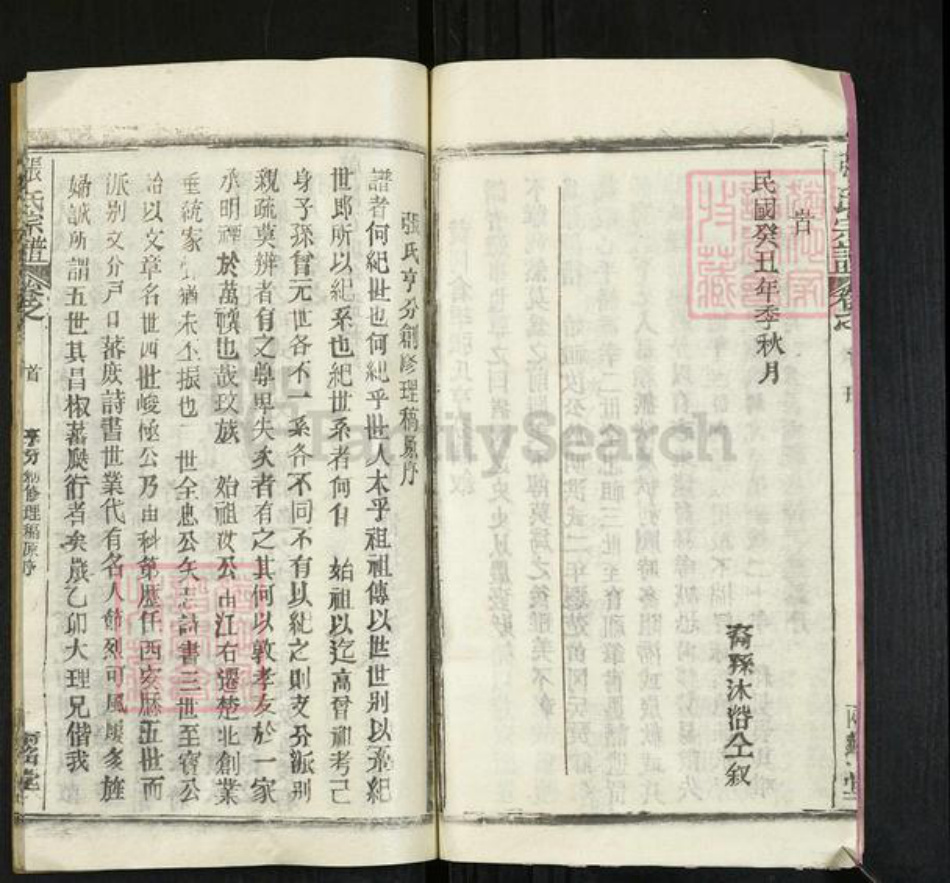 旹
民國癸丑年季秋月
裔孫沐浴仝叙
張氏宗譜
張氏亨分創修理稿原序
譜者何紀世也何紀乎世人本乎祖祖傳以世世別以系紀
世郎所以紀系也紀世系者何自 始祖以迄高曾祖考己
身子孫曾元世各不一系各不同不有以紀之則支分派別
親疏莫辨者有之尊卑失次者有之其何以敦孝友於一家
承明禋於萬禩也哉玟族 始祖汝公由江右遷楚北創業
垂統家 猶未丕振也 世全忠公矢志詩書三世至寶公
冶以文章名世四世峻極公乃由科第歷任西安縣五世而
派別支分戶口蕃庶詩書世業代有名人節烈可風屢多旌
婦誠所謂五世其昌椒蕃瓞衍者矣歲乙卯大理兄偕我
張氏宗譜 卷之 首 亨分創修理稿原序 堂
FamilySearch